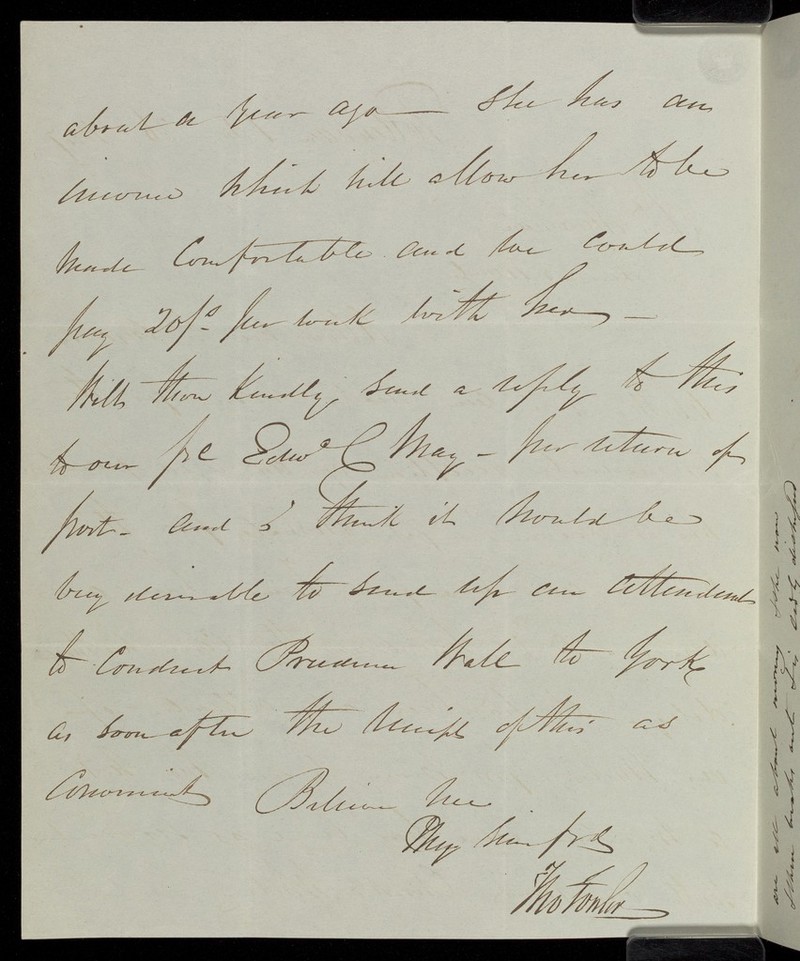 about a year ago — She has an
income which will allow her to be
made Comfortable and we could
pay 20/s per week with her —
Wilt thou Kindly send a reply to this
to our fd Edwd C May — per return of
post — and I think it would be
very desirable to send up an Attendant
to Conduct Prudence Wall to York
as soon after the receipt of this as
Convenient Believe me
Thy sin frd
Tho Fowler
are all about moving She now